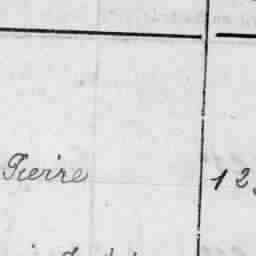 Pierre 12